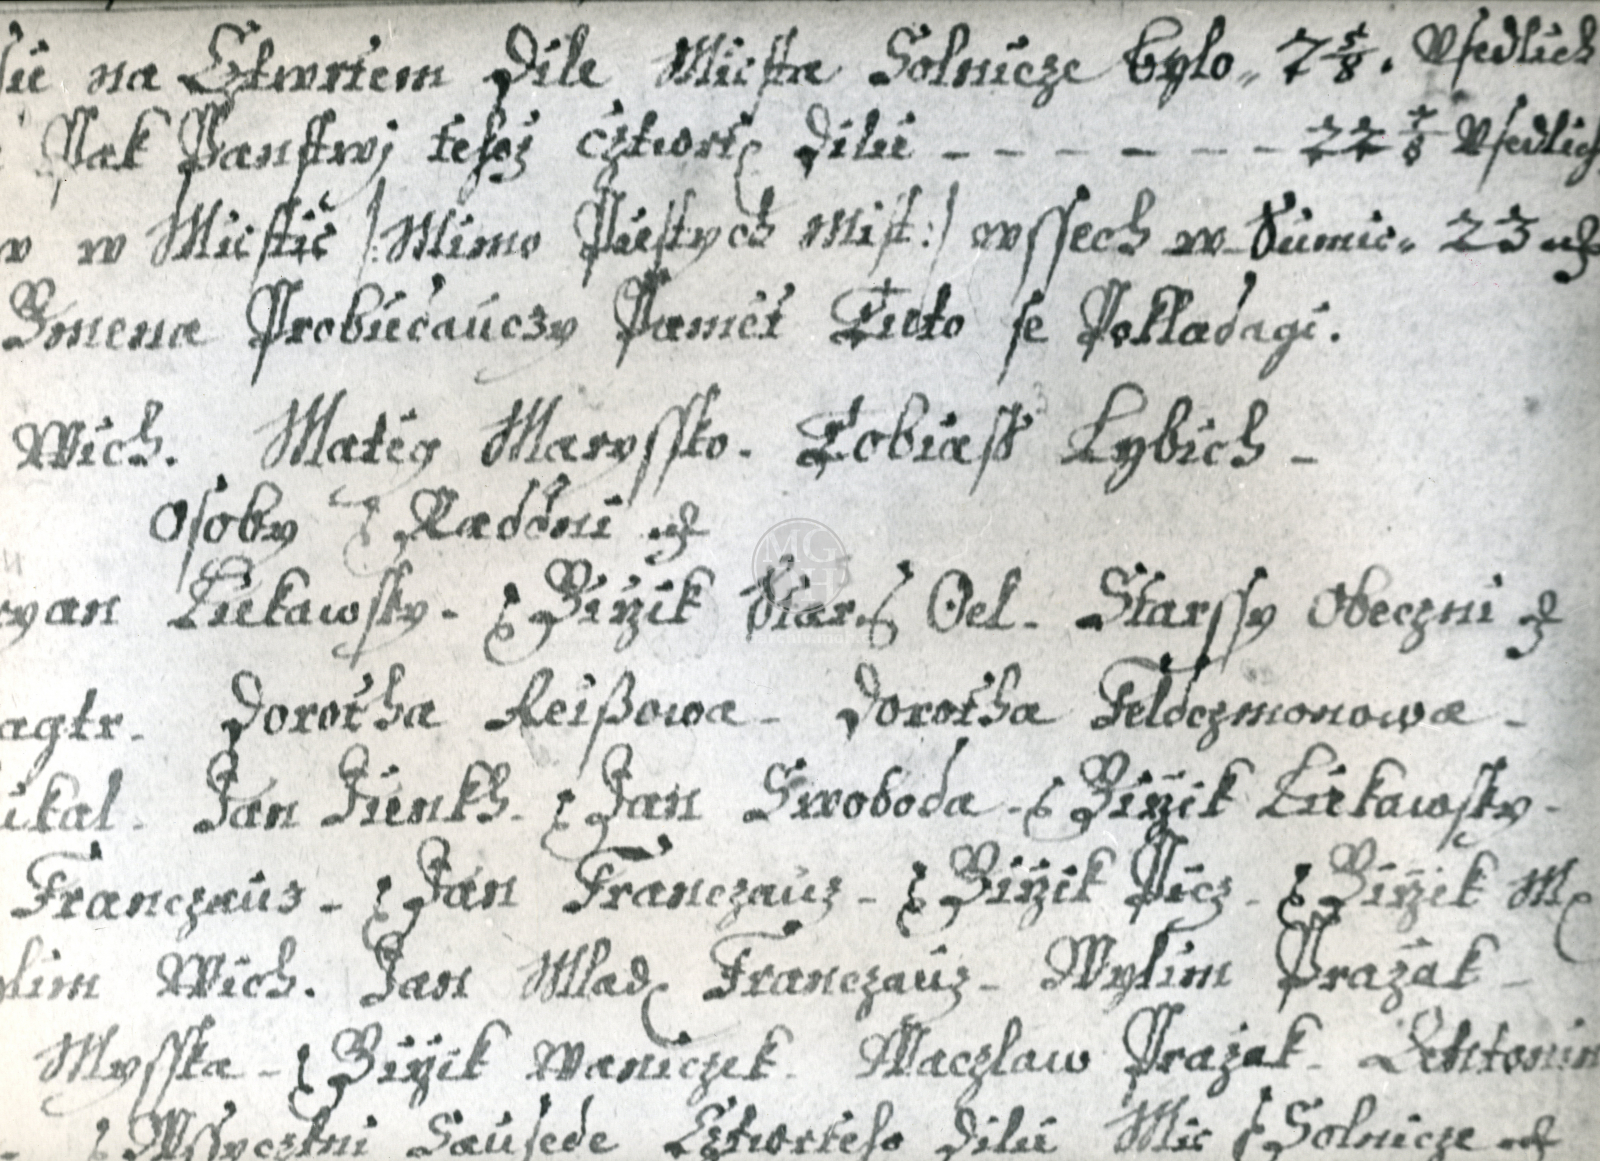 na Cztwrtem Dile Miesta Solnicze bylo 7 5/8. Usedlich
Pak Panstwj tehoż cztwrt Dilu – – – – – – 22 7/8 Usedlich
w w Miestie /: Mimo Pustych Mist :/ wssech w Sumie 23
Gmena Probudauczy Pamet Tuto se Pokladagi.
Wich. Mateg Maryssko. Tobiass Lybich –
Osoby Raddni
Lukawsky – Girzik Star. Oel. Starssy Obeczni
agtr. Dorotha Reißowa – Dorotha Feldczmonowa –
ukal – Jan Funkh – Jan Swoboda – Girzik Lukawsky –
Franczauz – Jan Franczauz – Girzik Picz – Girzik M
lim Wich. Jan Mlad Franczauz – Wylim Pražak –
Mysska – Girzik Waniczek – Waczlaw Pražak – Antonin
Wssyczkni Sausede Cztwrteho Dilu Mie Solnicze